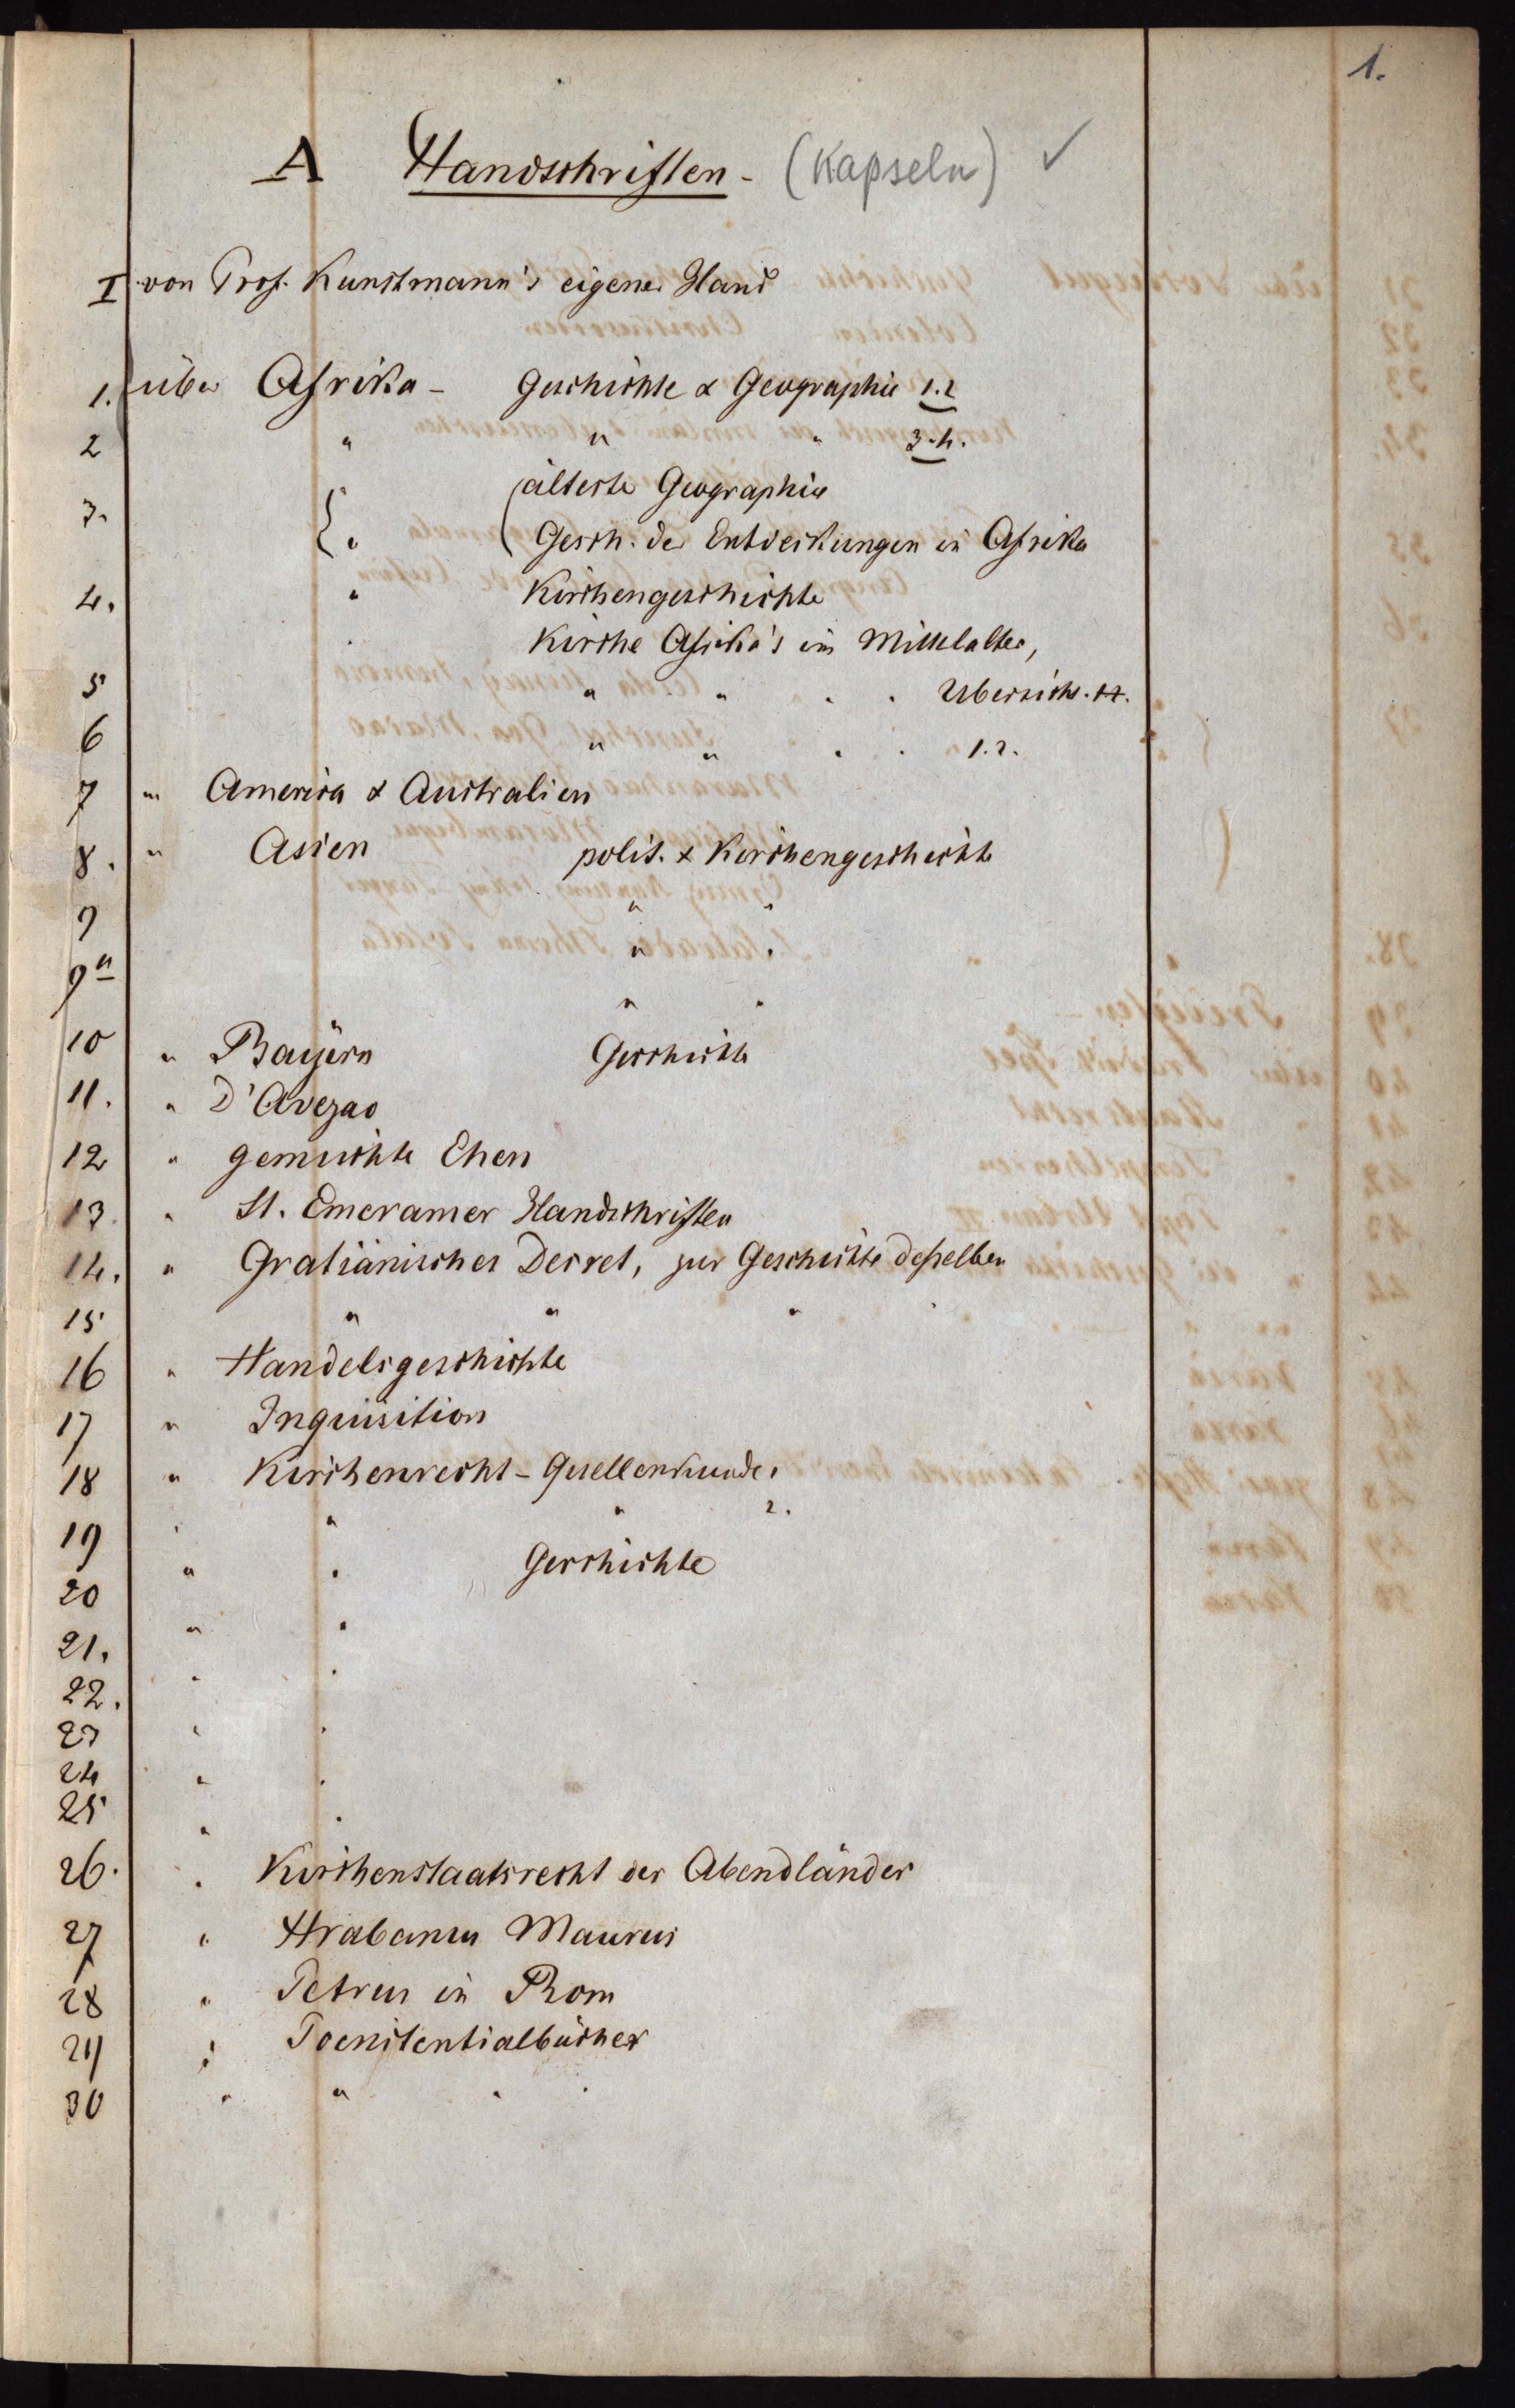 1.
A Handschriften - (Kapseln) ✓
I von Prof. Kunstmann's eigener Hand
1. über Afrika - Geschichte & Geographie 1.2
2 " " " 3.4.
älteste Geographie
3. " Gesch. der Entdeckungen in Afrika
4. " Kirchengeschichte
" Kirche Afrika's im Mittelalter,
5 " " " " Übersicht.
6 " " " " 1.2.
7 " America & Australien
8. " Asien polit. & Kirchengeschichte
9 " "
" "
9a
" "
10 " Bayern Geschichte
11. " D'Avezac
12 " gemischte Ehen
13. " St. Emeramer Handschriften
14. " Gratianisches Decret, zur Geschichte deßelben
15 " " " "
16 " Handelsgeschichte
17 " Inquisition
18 " Kirchenrecht - Quellenkunde 1
19 " " " 2.
20 " " Geschichte
21. " "
22. " "
23 " "
24 " "
25 " "
26. " Kirchenstaatsrecht der Abendländer
27 " Hrabanus Maurus
28 " Petrus in Rom
29 " Poenitentialbücher
30 " " " "